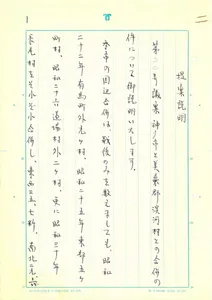 提案説明
第二一号議案神戸市と美嚢郡淡河村との合併の
件について御説明いたします。
本市の周辺合併は、戦後のみを数えましても、昭和
二十二年有馬町外九ヶ村、昭和二十五年東部五ヶ
町村、昭和二十六年道場村外二ヶ村、更に昭和三十年
長尾村をそれぞれ合併し、東西三五、七粁、南北二九、六